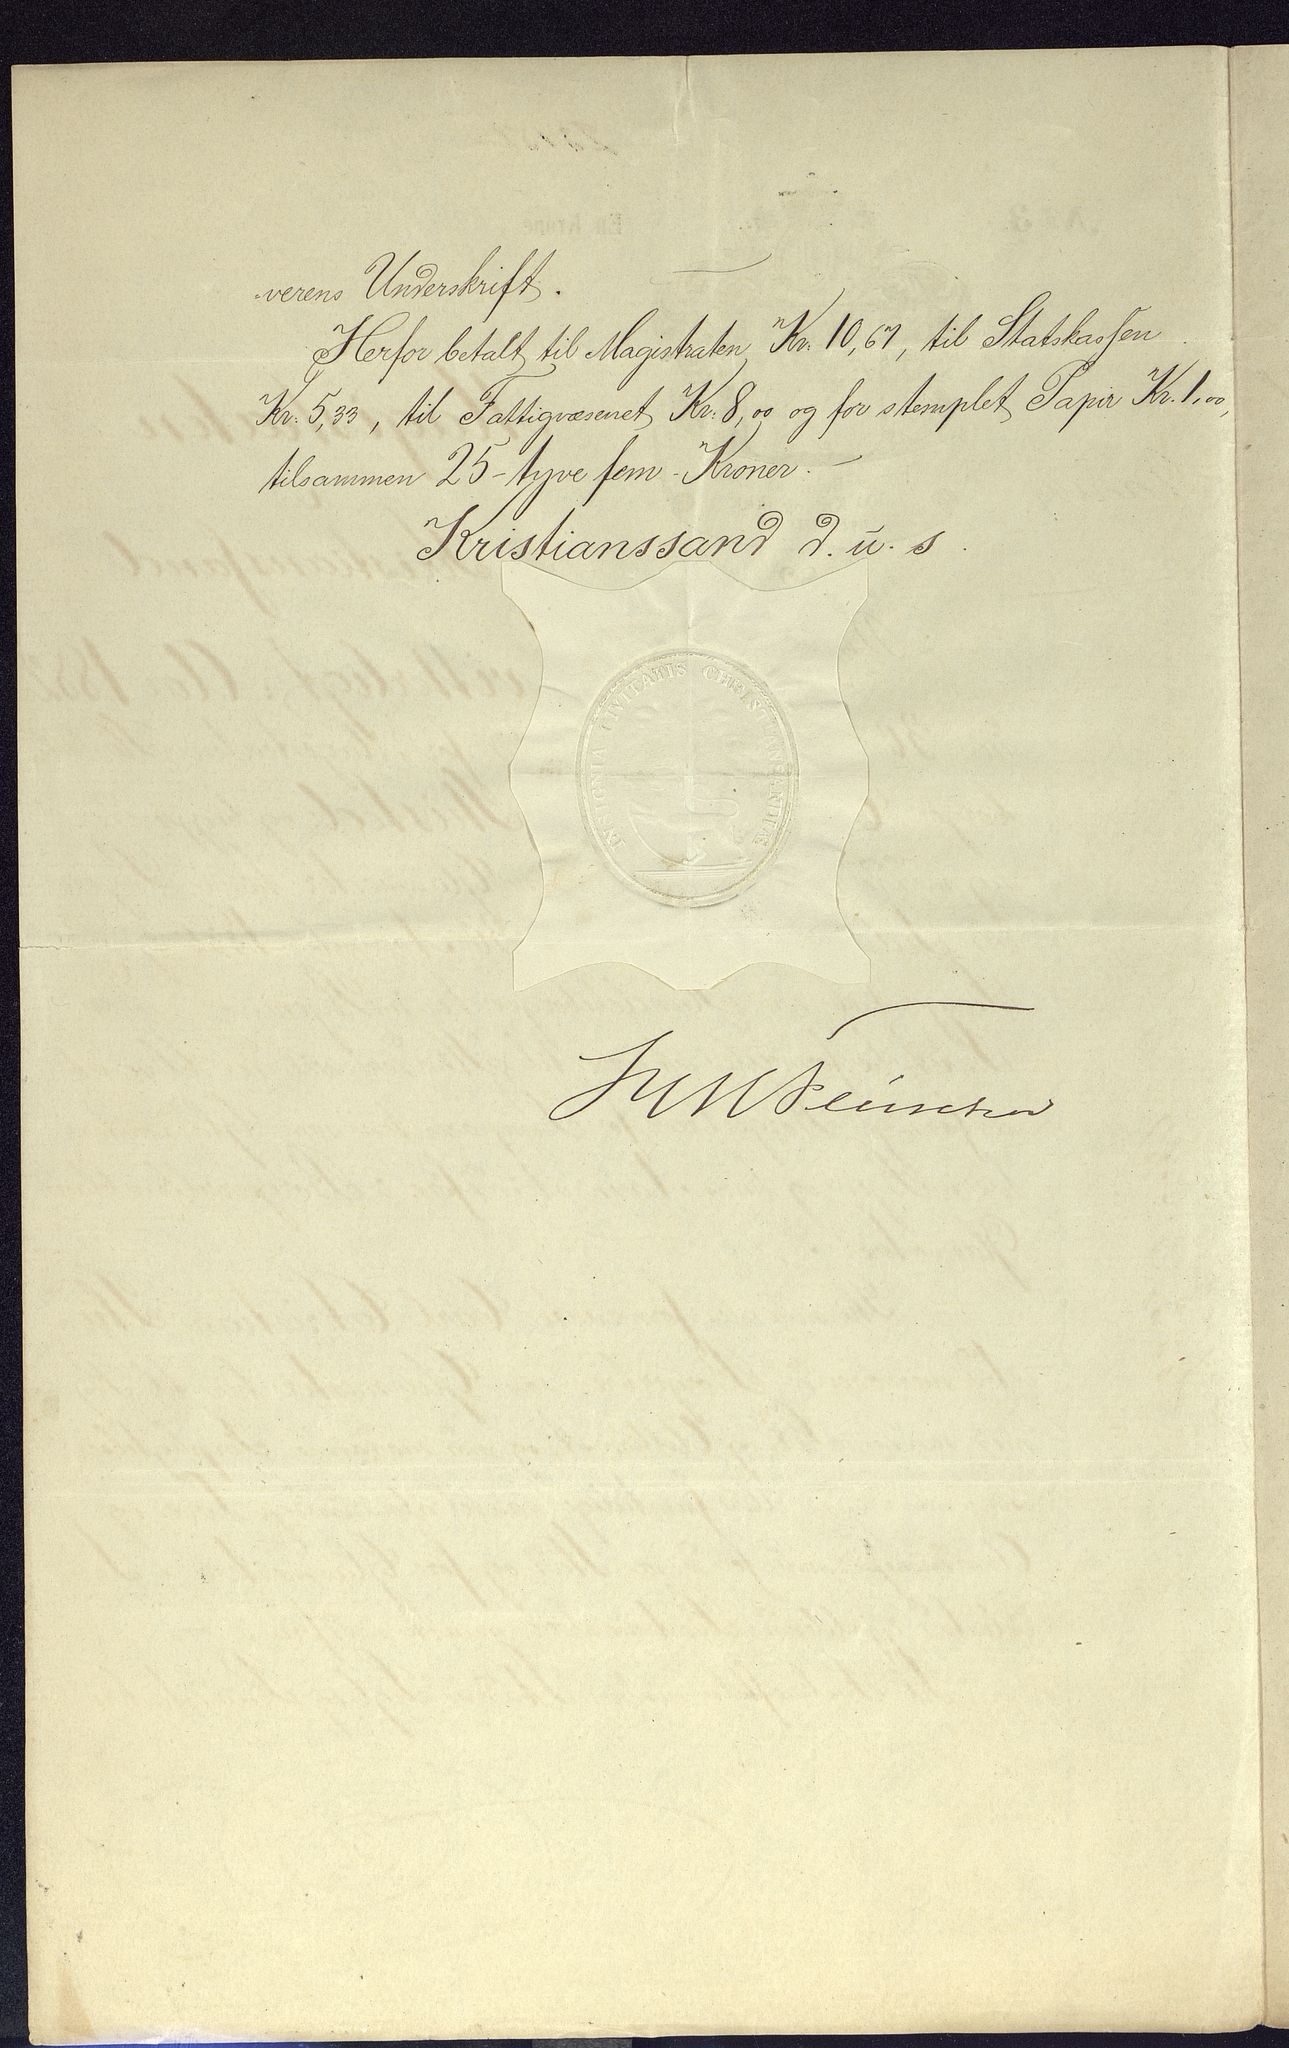 -verens Underskrift.
Herfor betalt til Magistraten Kr. 10,67, til Statskassen
Kr. 5,33, til Fattigvæsenet Kr. 8,00 og for stemplet Papir Kr. 1,00,
tilsammen 25 - tyve fem - Kroner. -
Kristianssand d. u. s.
INSIGNIA CIVITATIS CHRISTIANSANDIÆ